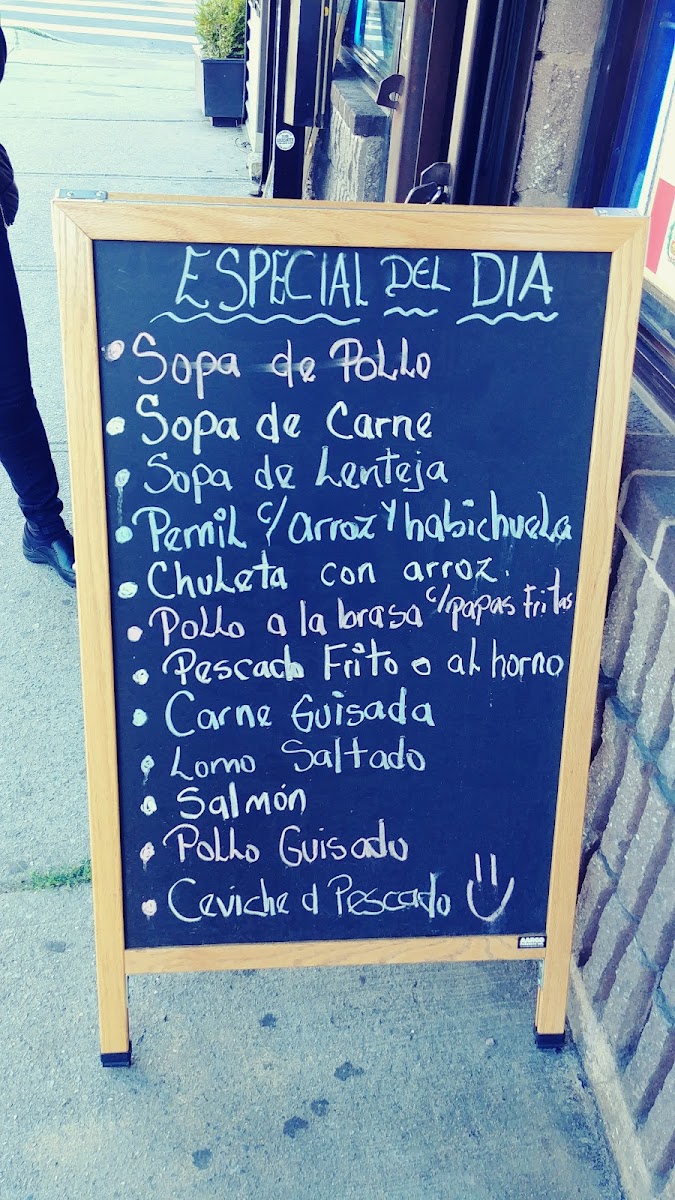 ESPECIAL DEL DIA
• Sopa de Pollo
• Sopa de Carne
• Sopa de Lenteja
• Pernil c/ arroz y habichuela
• Chuleta con arroz.
• Pollo a la brasa c/papas Fritas
• Pescado Frito o al horno
• Carne Guisada
• Lomo Saltado
• Salmón
• Pollo Guisado
• Ceviche d Pescado
AARCO